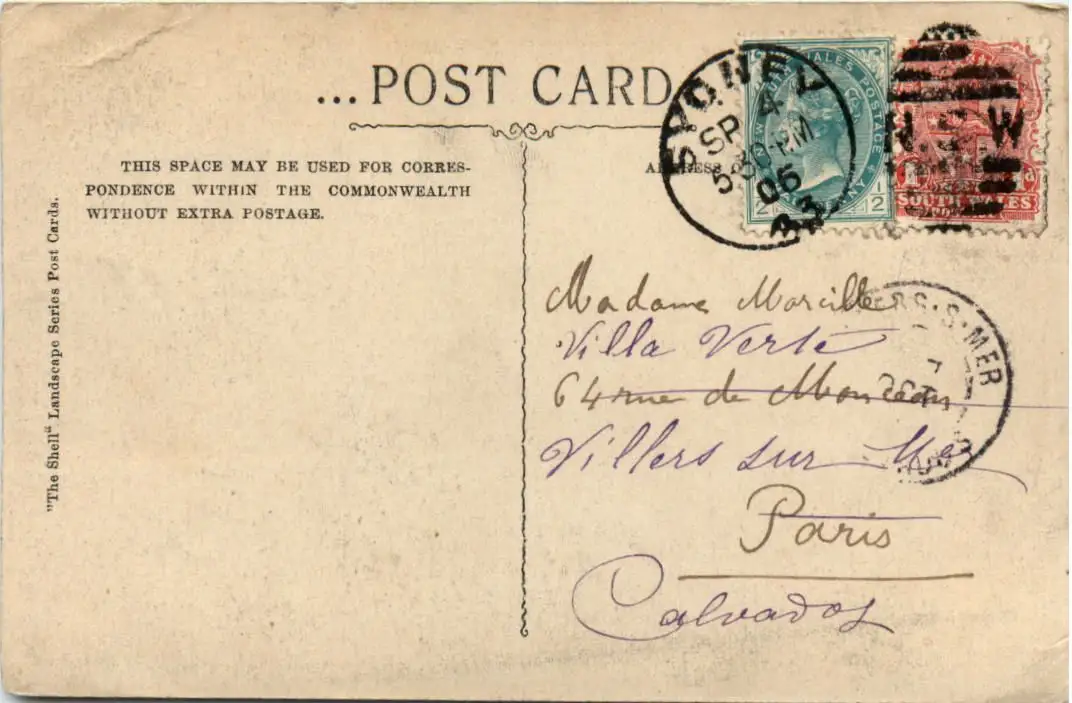 ...POST CARD
THIS SPACE MAY BE USED FOR CORRES-
PONDENCE WITHIN THE COMMONWEALTH
WITHOUT EXTRA POSTAGE.
"The Shell" Landscape Series Post Cards.
SYDNEY
SP 4
5 30-PM
06
NEW SOUTH WALES POSTAGE
N.S.W
SOUTH WALES
Madame Marcille
Villa Verte
64 rue de Monceau
Villers sur Mer
Paris
Calvados
ERS·S·MER